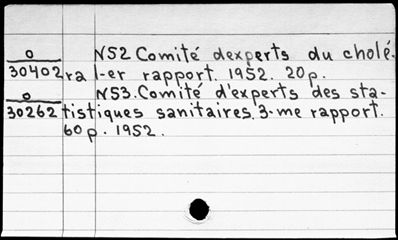 0 N52 Comité dexperts du cholé-
30402 ra 1-er rapport. 1952. 20p.
0 N53. Comité d'experts des sta-
30262 tistiques sanitaires. 3-me rapport.
60p. 1952.